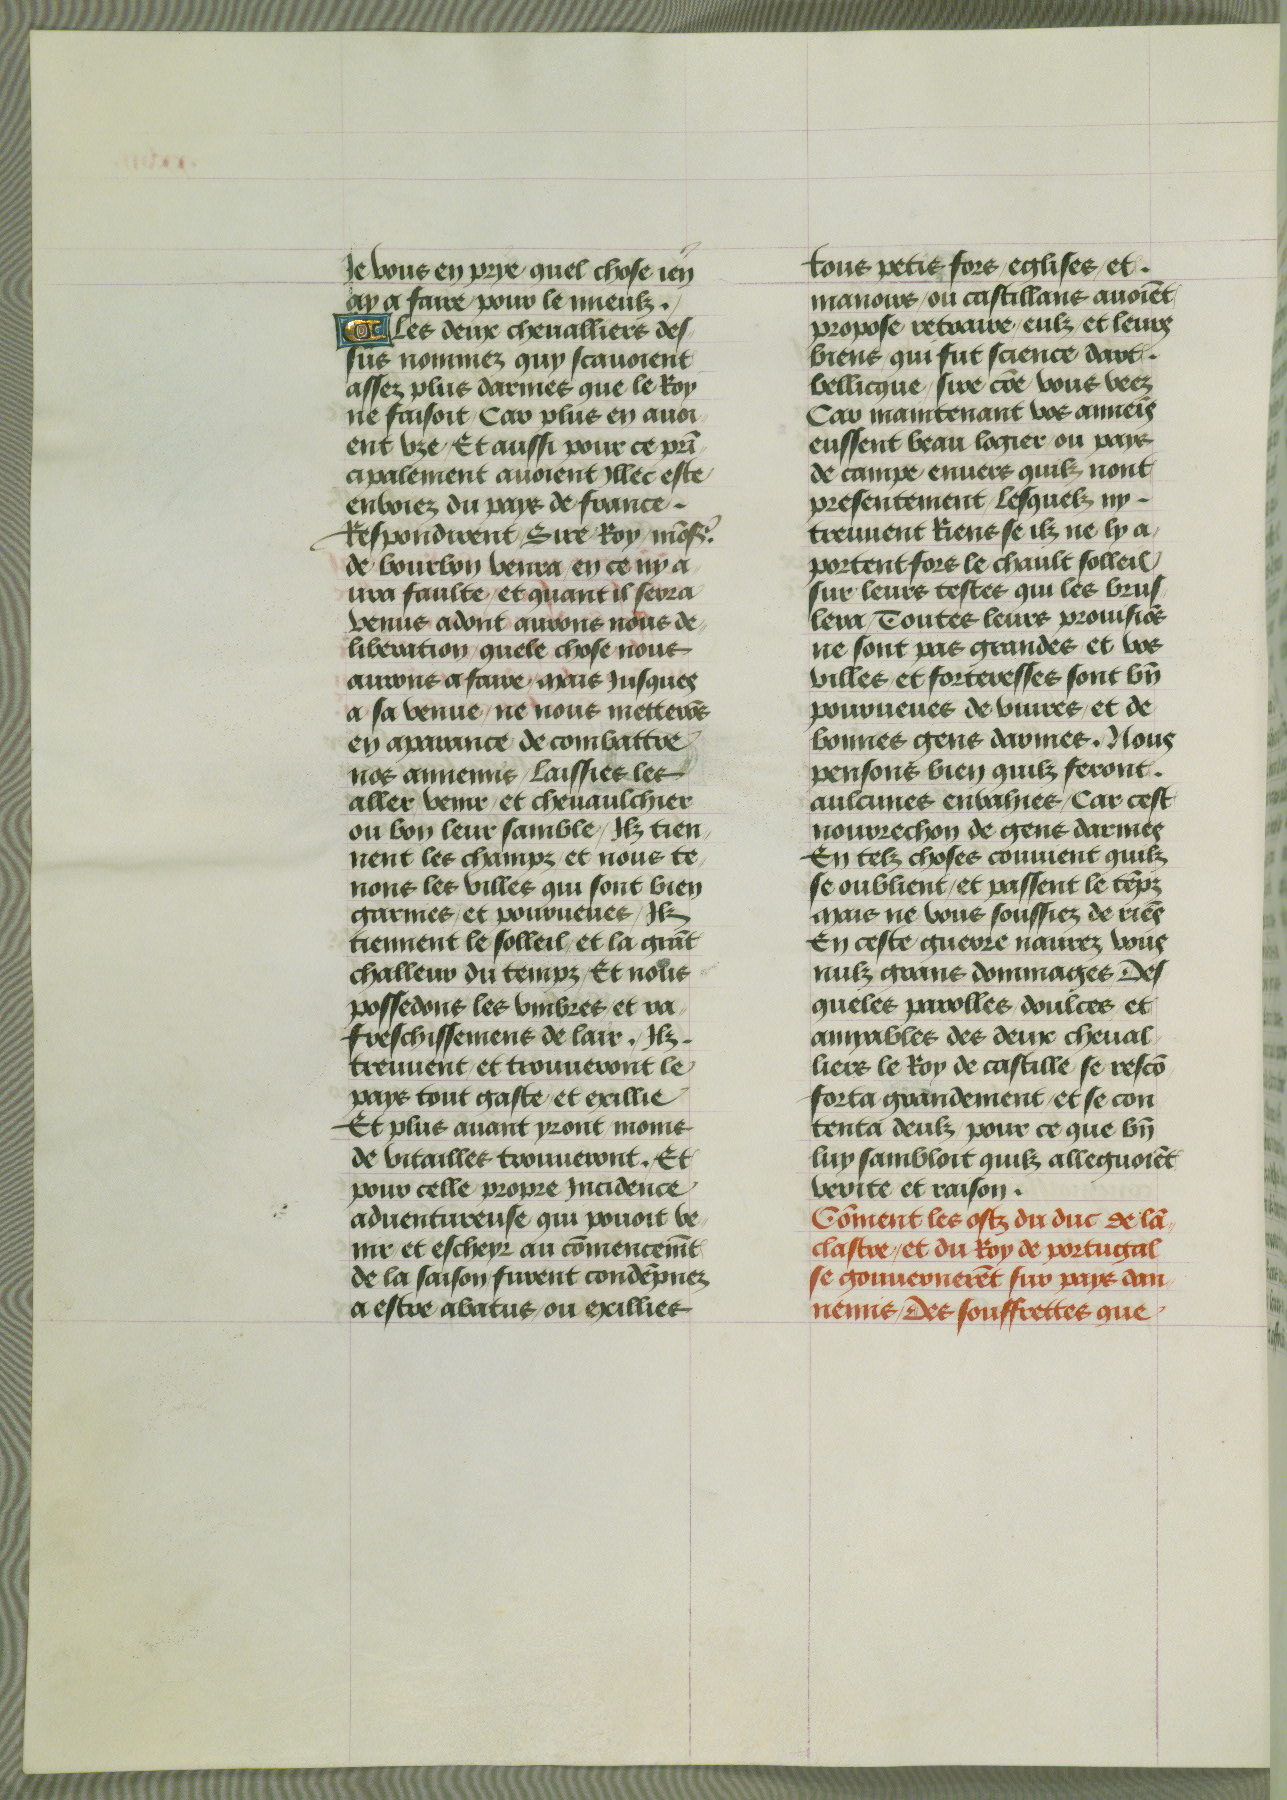 Je vous en prye / quel chose ien
ay a faire / pour le mieulz ./
Les deux chevalliers des/
sus nommez quy scavoient
assez plus darmes que le Roy
ne faisoit / Car plus en avoi
ent vze / Et aussi pour ce pri̅
cipalement avoient Jllec este /
envoiez du pays de france .
Respondirent / Sire Roy / mo̅sr̅
de bourbon venra / en ce ny a
ura faulte / et quant il serra
venus adont aurons nous de /
liberation / quele chose nous
aurons a faire / mais Jusques
a sa venue / ne nous mettero̅s
en aparance de combattre
nos annemis / Laissies les
aller venir / et chevaulchier
ou bon leur samble / Jlz tien /
nent les champz et nous te /
nons les villes qui sont bien
garnies / et pourveues / Jlz
tiennent le solleil / et la gra̅t
challeur du tempz / Et nous
possedons les vmbres et ra /
freschissemens de lair . Jlz .
treuvent / et trouveront le
pays tout gaste / et exillie
Et plus avant yront / moins
de vitailles trouveront . Et
pour celle propre Jncidence
adventureuse qui povoit ve /
nir et escheyr au co̅mencemt̅
de la saison / furent conde̅pnez
a estre abatus / ou exillies
tous petis fors / eglises / et .
manoirs / ou castillans avoie̅t
propose retraire / eulz et leurs
biens / qui fut science dart .
bellicque / sire co̅e vous veez
Car maintenant vos anneis̅
eussent beau logier ou pays
de campe / envers quilz nont
presentement / Lesquelz ny .
treuvent Riens se ilz ne ly a /
portent fors le chault solleil
sur leurs testes qui les brus /
lera / Toutes leurs provisio̅s
ne sont pas grandes et vos
villes / et forteresses sont bn̅
pourveues de vivres / et de
bonnes gens darmes . Nous
pensons bien quilz feront .
aulcunes envahies / Car cest
nourrechon de gens darmes
En telz choses convient quilz
se oublient / et passent le te̅pz
mais ne vous soussiez de rie̅s
En ceste guerre naurez vous
nulz grans dommages / Des
queles parolles / doulces et
amyables des deux cheval
liers le Roy de castille se resco̅
forta grandement / et se con
tenta deulz / pour ce que bn̅
luy sambloit quilz alleguoie̅t
verite et raison .
Co̅ment les ostz du duc de la̅ /
clastre / et du Roy de portugal
se gouvernere̅t sur pays dan
nemis / Des souffrettes que